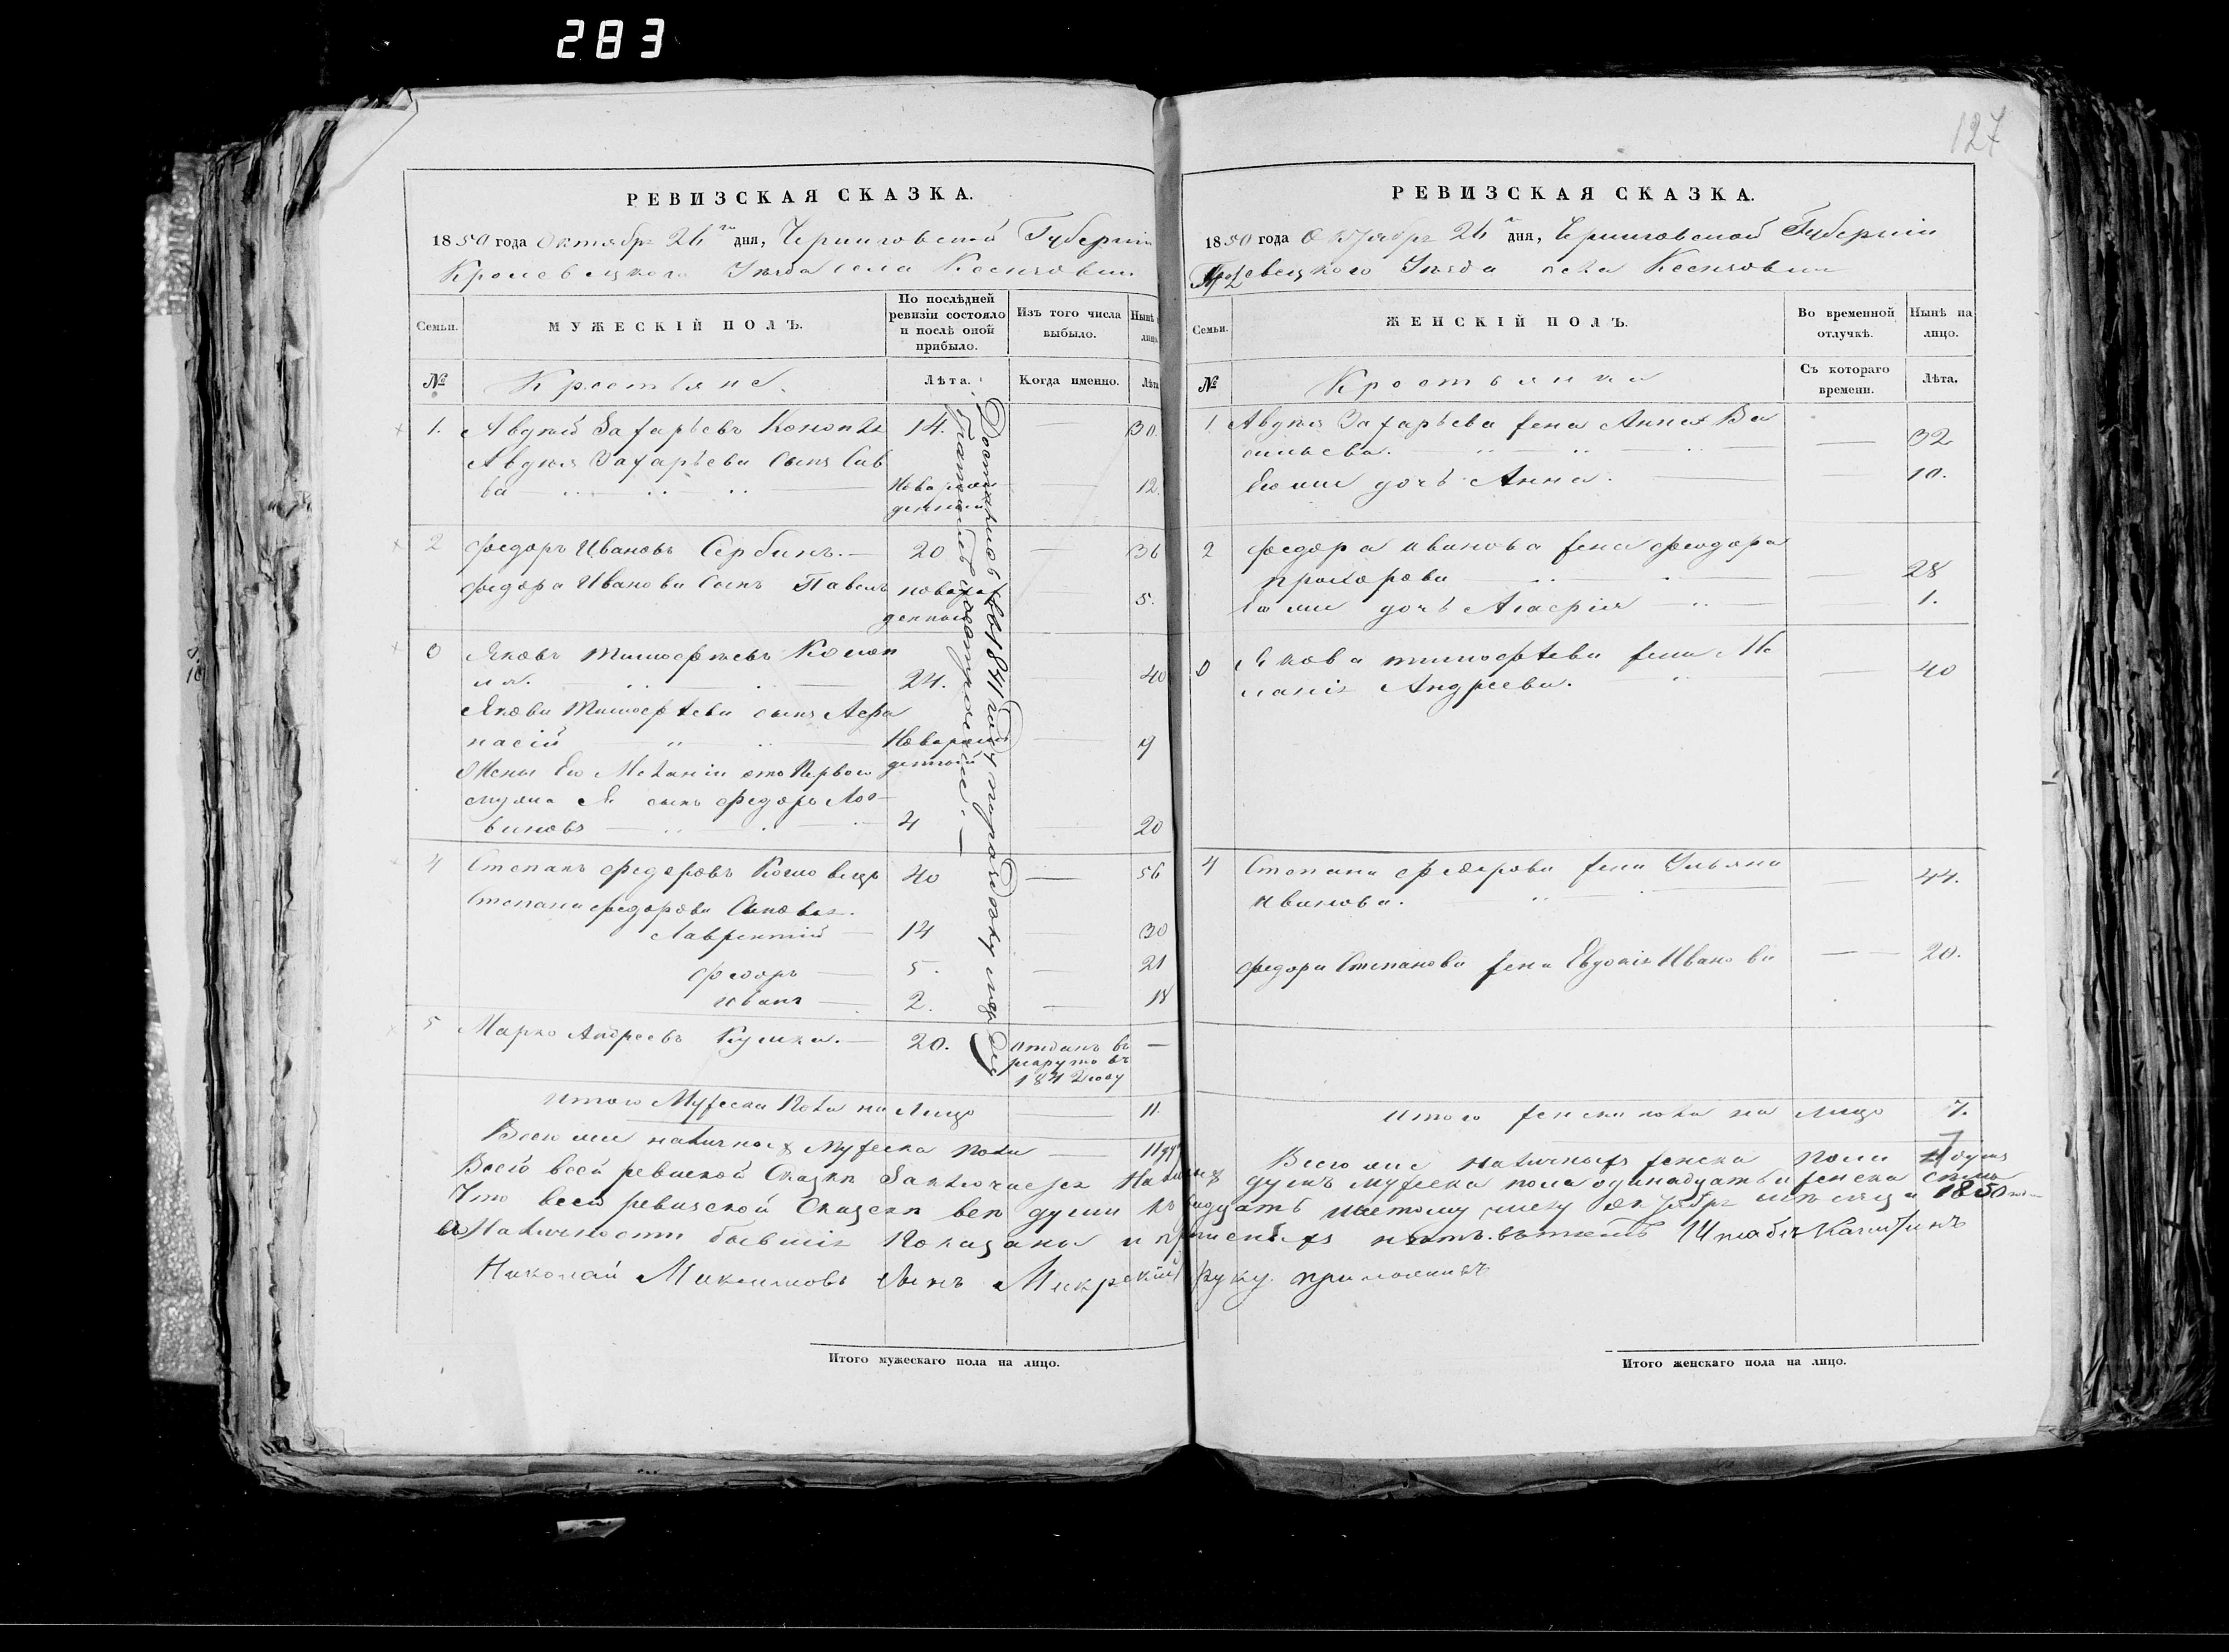 283
127
РЕВИЗСКАЯ СКАЗКА.
1850 года Октября 26го дня, Черниговской Губерніи
Кролевецкого Уезда села
Семьи.
МУЖЕСКІЙ ПОЛЪ.
По послѣдней ревизіи состояло и послѣ оной прибыло.
Изъ того числа выбыло.
Нынѣ на лицо.
№
Крестьяне.
Лѣта.
Когда именно.
Лѣта
1. Авдѣй Захарьевъ 14. — 30
Авдѣя Захарьева сынъ Сав
ва новорож
денный — 12.
2 Федоръ Ивановъ Сербинъ. — 20 — 36
Федора Иванова сынъ Павелъ новорож
денный — 5.
3 Яковъ Тимофѣевъ
24. 40
Якова Тимофѣева сынъ Афа
насій новорож
денный — 9
Жены его Меланіи отъ первого
мужа сынъ Федоръ Лог
виновъ — 4 — 20
4 Степанъ Федоровъ 40 — 56
Степана Федорова сыновья.
Лаврентій — 14 — 30
Федоръ — 5. — 21
Иванъ — 2. — 18
5 Марко Андреевъ 20. отданъ въ —
рекруты въ
1842 году
Достались въ 1841 году по раздѣлу
Итого мужеска пола на лицо — 11.
Всего же наличныхъ мужеска пола — 11
РЕВИЗСКАЯ СКАЗКА.
1850 года Октября 26 дня, Черниговской Губерніи
Кролевецкого Уезда села
Семьи.
ЖЕНСКІЙ ПОЛЪ.
Во временной отлучкѣ.
Нынѣ на лицо.
№
Крестьянки
Съ котораго времени.
Лѣта.
1 Авдѣя Захарьева жена Анна Ва
сильева. — 32
Его же дочь Анна. — 10.
2 Федора Иванова жена Феодора
Прохорова — 28
Его же дочь — 1.
3 Якова Тимофѣева жена Ме
ланія Андреева. — 40
4 Степана Федорова жена Ульяна
Иванова. — 44.
Федора Степанова жена Евдокія Иванова — 20.
Итого женска пола на лицо 7.
Всего же наличныхъ женска пола 7 душъ
Всего в сей ревизской сказке заключается наличныхъ душъ мужеска пола одинадцать и женска семь
Что в сей ревизской сказки все души къ двадцать шестому числу октября месяца 1850 года
в наличности бывшія показаны и Штабсъ Капитанъ
Николай Максимовъ сынъ руку приложилъ
Итого мужескаго пола на лицо.
Итого женскаго пола на лицо.